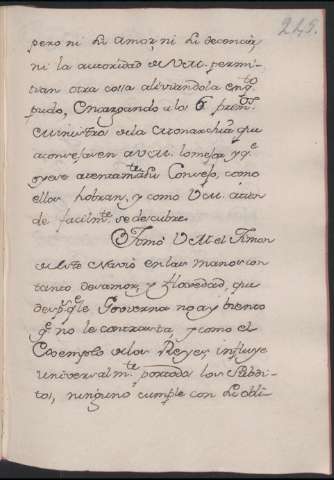 245.
pero ni el amor, ni el
ni la autoridad de V.M. permi-
tian otra cosa aliviandola en qto
pudo, Encargando a los
Ministros de la Monarchia que
aconsejasen a V.M. lo mejor y qe
oyese atentamte su Consejo, como
ellos hobran, y como V.M. atien
de facilmte se descubre.
Tomó V.M. el Timon
de este Navio en las manos con
tanto desamor, y que
despues qe le Govierna no ay biento
qe no le contrasta, y como el
Exemplo de los Reyes, influye
universalmte por todos los Subdi-
tos, ninguno cumple con la obli-